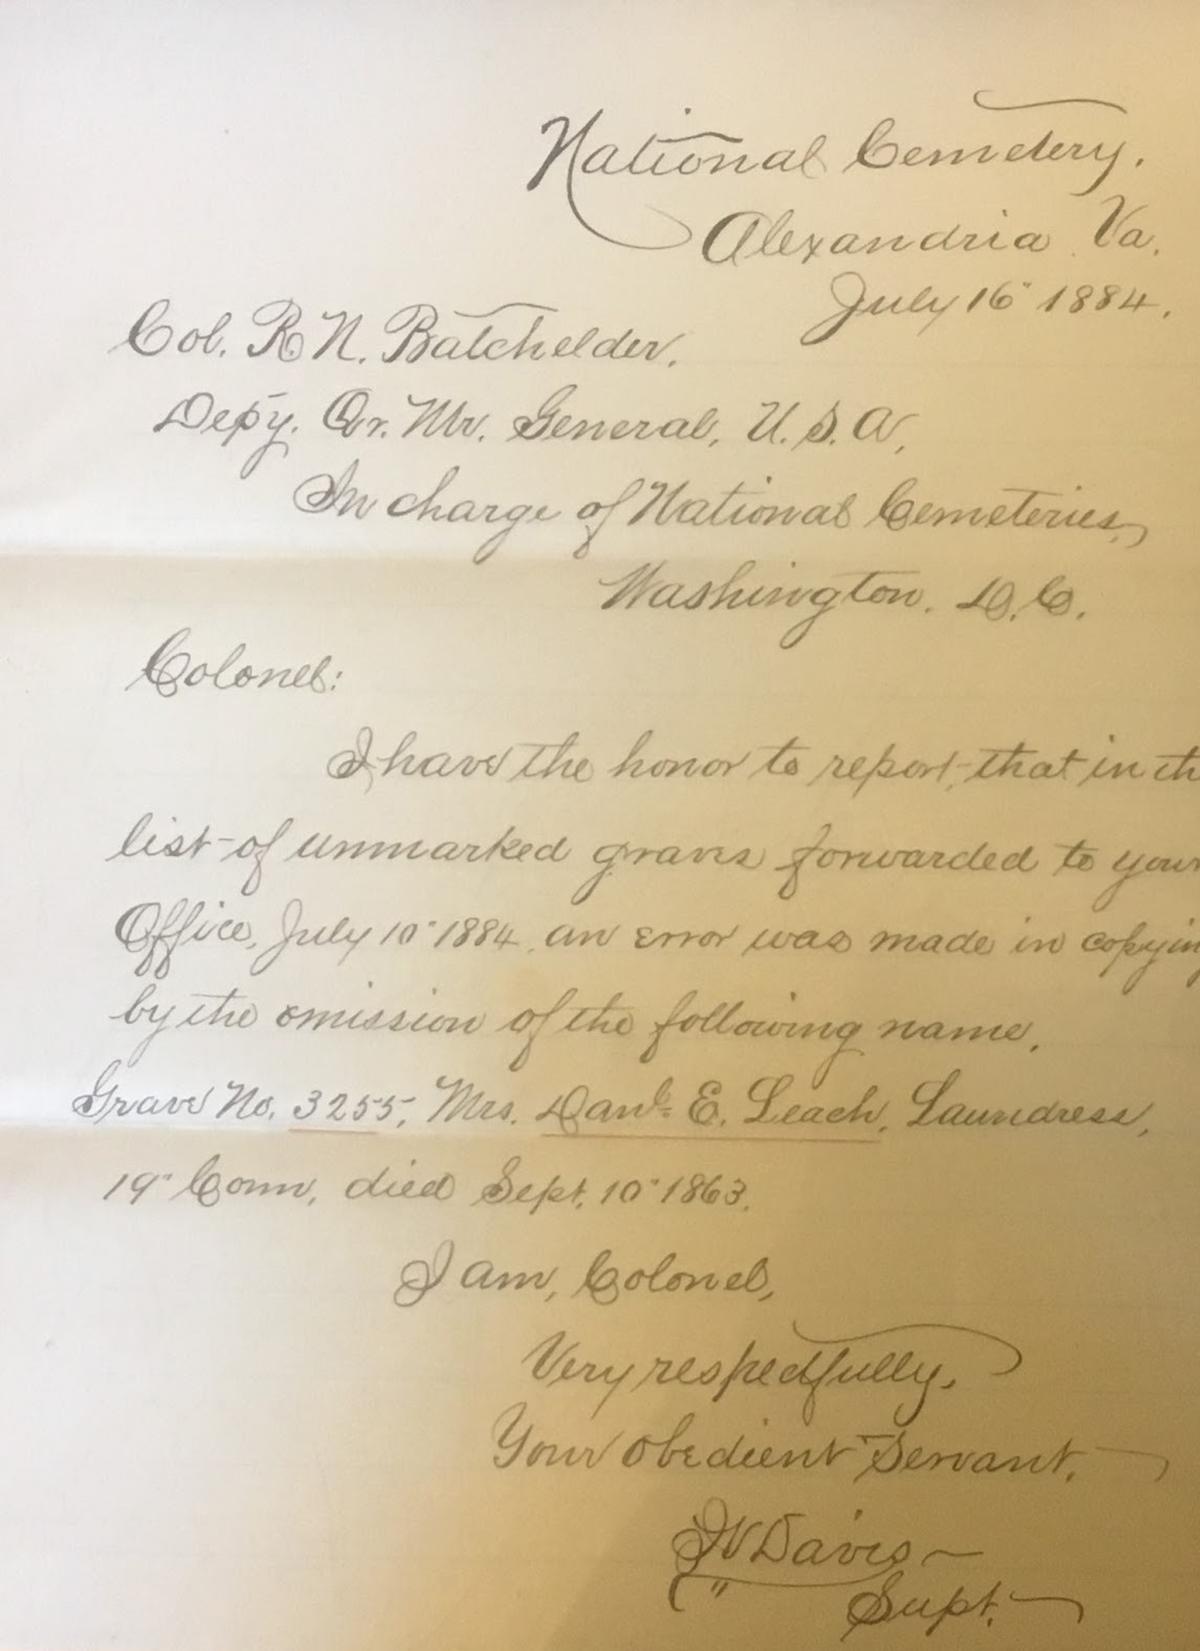 National Cemetery.
Alexandria Va.
July 16" 1884.
Col. R. N. Batchelder.
Depy. Qr. Mr. General, U. S. A,
In charge of National Cemeteries,
Washington. D. C.
Colonel:
I have the honor to report, that in th
list of unmarked graves forwarded to your
Office, July 10" 1884, an error was made in copyin
by the omission of the following name.
Grave No. 3255, Mrs. Danl. E. Leach, Laundress,
19" Conn, died Sept. 10" 1863.
I am, Colonel,
Very respectfully,
Your obedient Servant,
Davis
Supt.